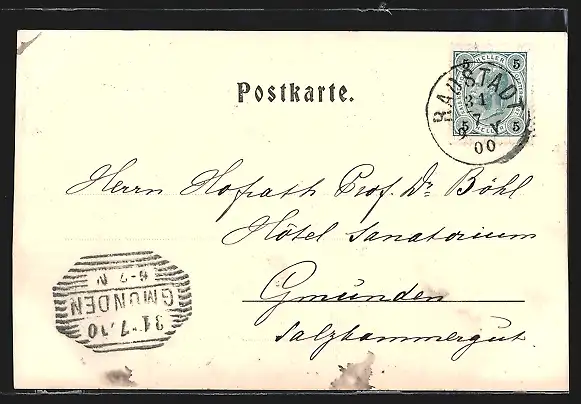 Postkarte.
5 HELLER 5
5 HELLER 5
RADSTADT
31
7
00
Herrn Hofrath Prof. Dr Böhl
Hôtel Sanatorium
Gmünden
Salzkammergut.
GMUNDEN
31.7.00